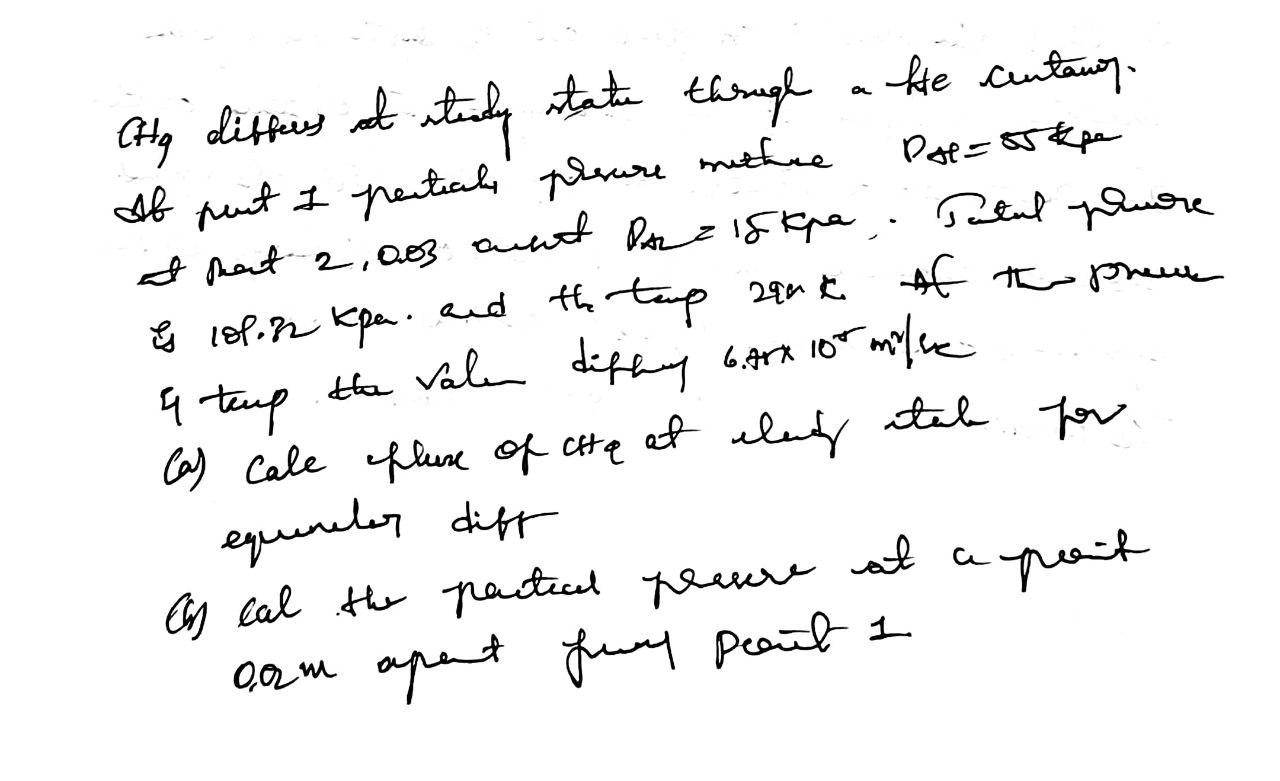 CH4 diffuses at steady state through a He
At point 1 partial pressure methane PA1 = 55 kpa
at point 2, 0.03 apart PA2 = 15 Kpa. Total pressure
is 101.32 Kpa. and the temp 298 K. At the pressure
& temp the value
(a) Calc flux of CH4 at steady state for
diff
(b) Cal the partical pressure at a point
0.02m apart from point 1